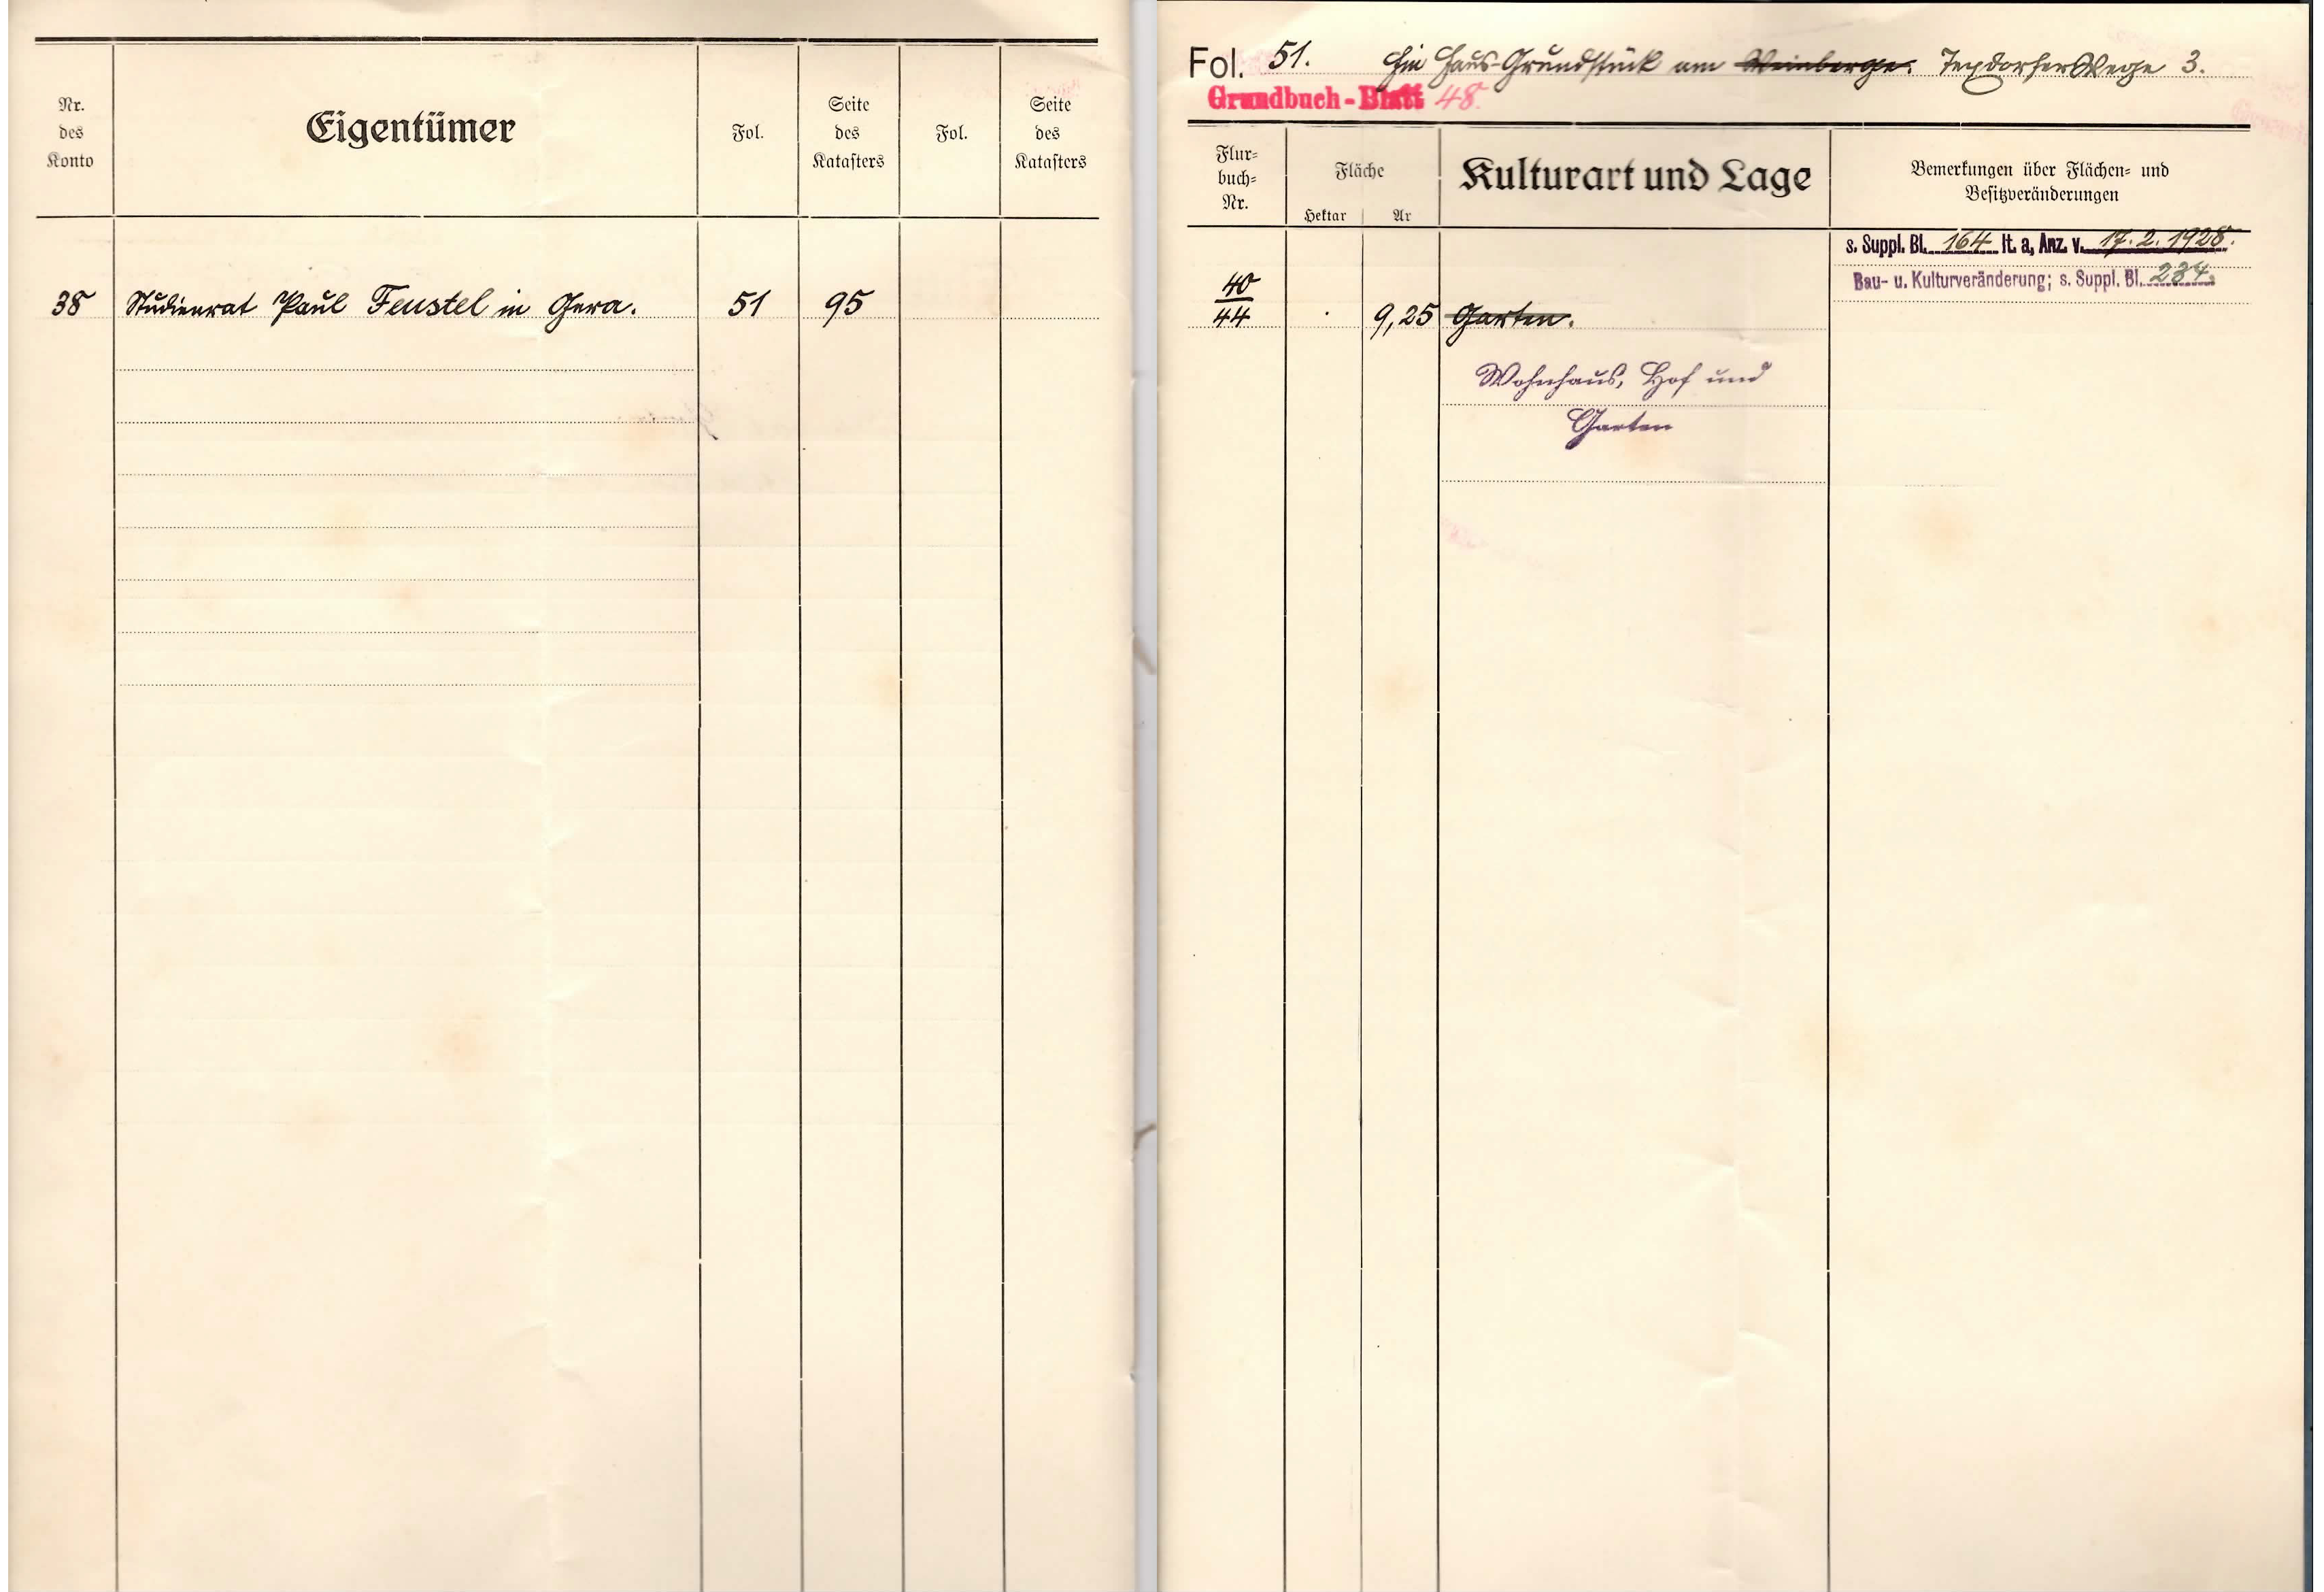 Nr.
des
Konto
Eigentümer
Fol.
Seite
des
Katasters
Fol.
Seite
des
Katasters
38 Studienrat Paul Feustel in Gera. 51 95
Fol. 51. Ein Haus-Grundstück am Weinberge. Wege 3.
Grundbuch-Blatt 48.
Flur-
buch-
Nr.
Fläche
Hektar Ar
Kulturart und Lage
Bemerkungen über Flächen- und
Besitzveränderungen
s. Suppl. Bl. 164 lt. a, Anz. v. 17. 2. 1928.
Bau- u. Kulturveränderung; s. Suppl. Bl. 234.
40
44 . 9,25 Garten.
Wohnhaus, Hof und
Garten